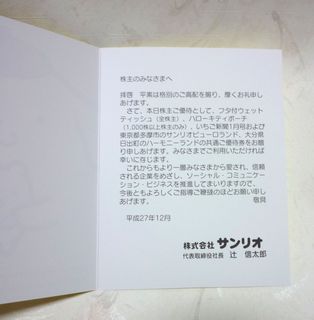 株主のみなさまへ
拝啓　平素は格別のご高配を賜り、厚くお礼申し
あげます。
さて、本日株主ご優待として、フタ付ウェット
ティッシュ（全株主）、ハローキティポーチ
（1,000株以上株主のみ）、いちご新聞1月号および
東京都多摩市のサンリオピューロランド、大分県
日出町のハーモニーランドの共通ご優待券をお贈
り申しあげます。みなさまでご利用いただければ
幸いに存じます。
これからもより一層みなさまから愛され、信頼
される企業をめざし、ソーシャル・コミュニケー
ション・ビジネスを推進してまいりますので、
今後ともよろしくご指導ご鞭撻のほどお願い申し
あげます。　敬具
平成27年12月
株式会社 サンリオ
代表取締役社長　辻　信太郎